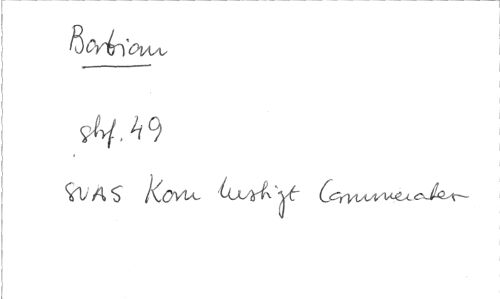 Barbian
skf. 49
SVAS Kom lustigt Cammerater